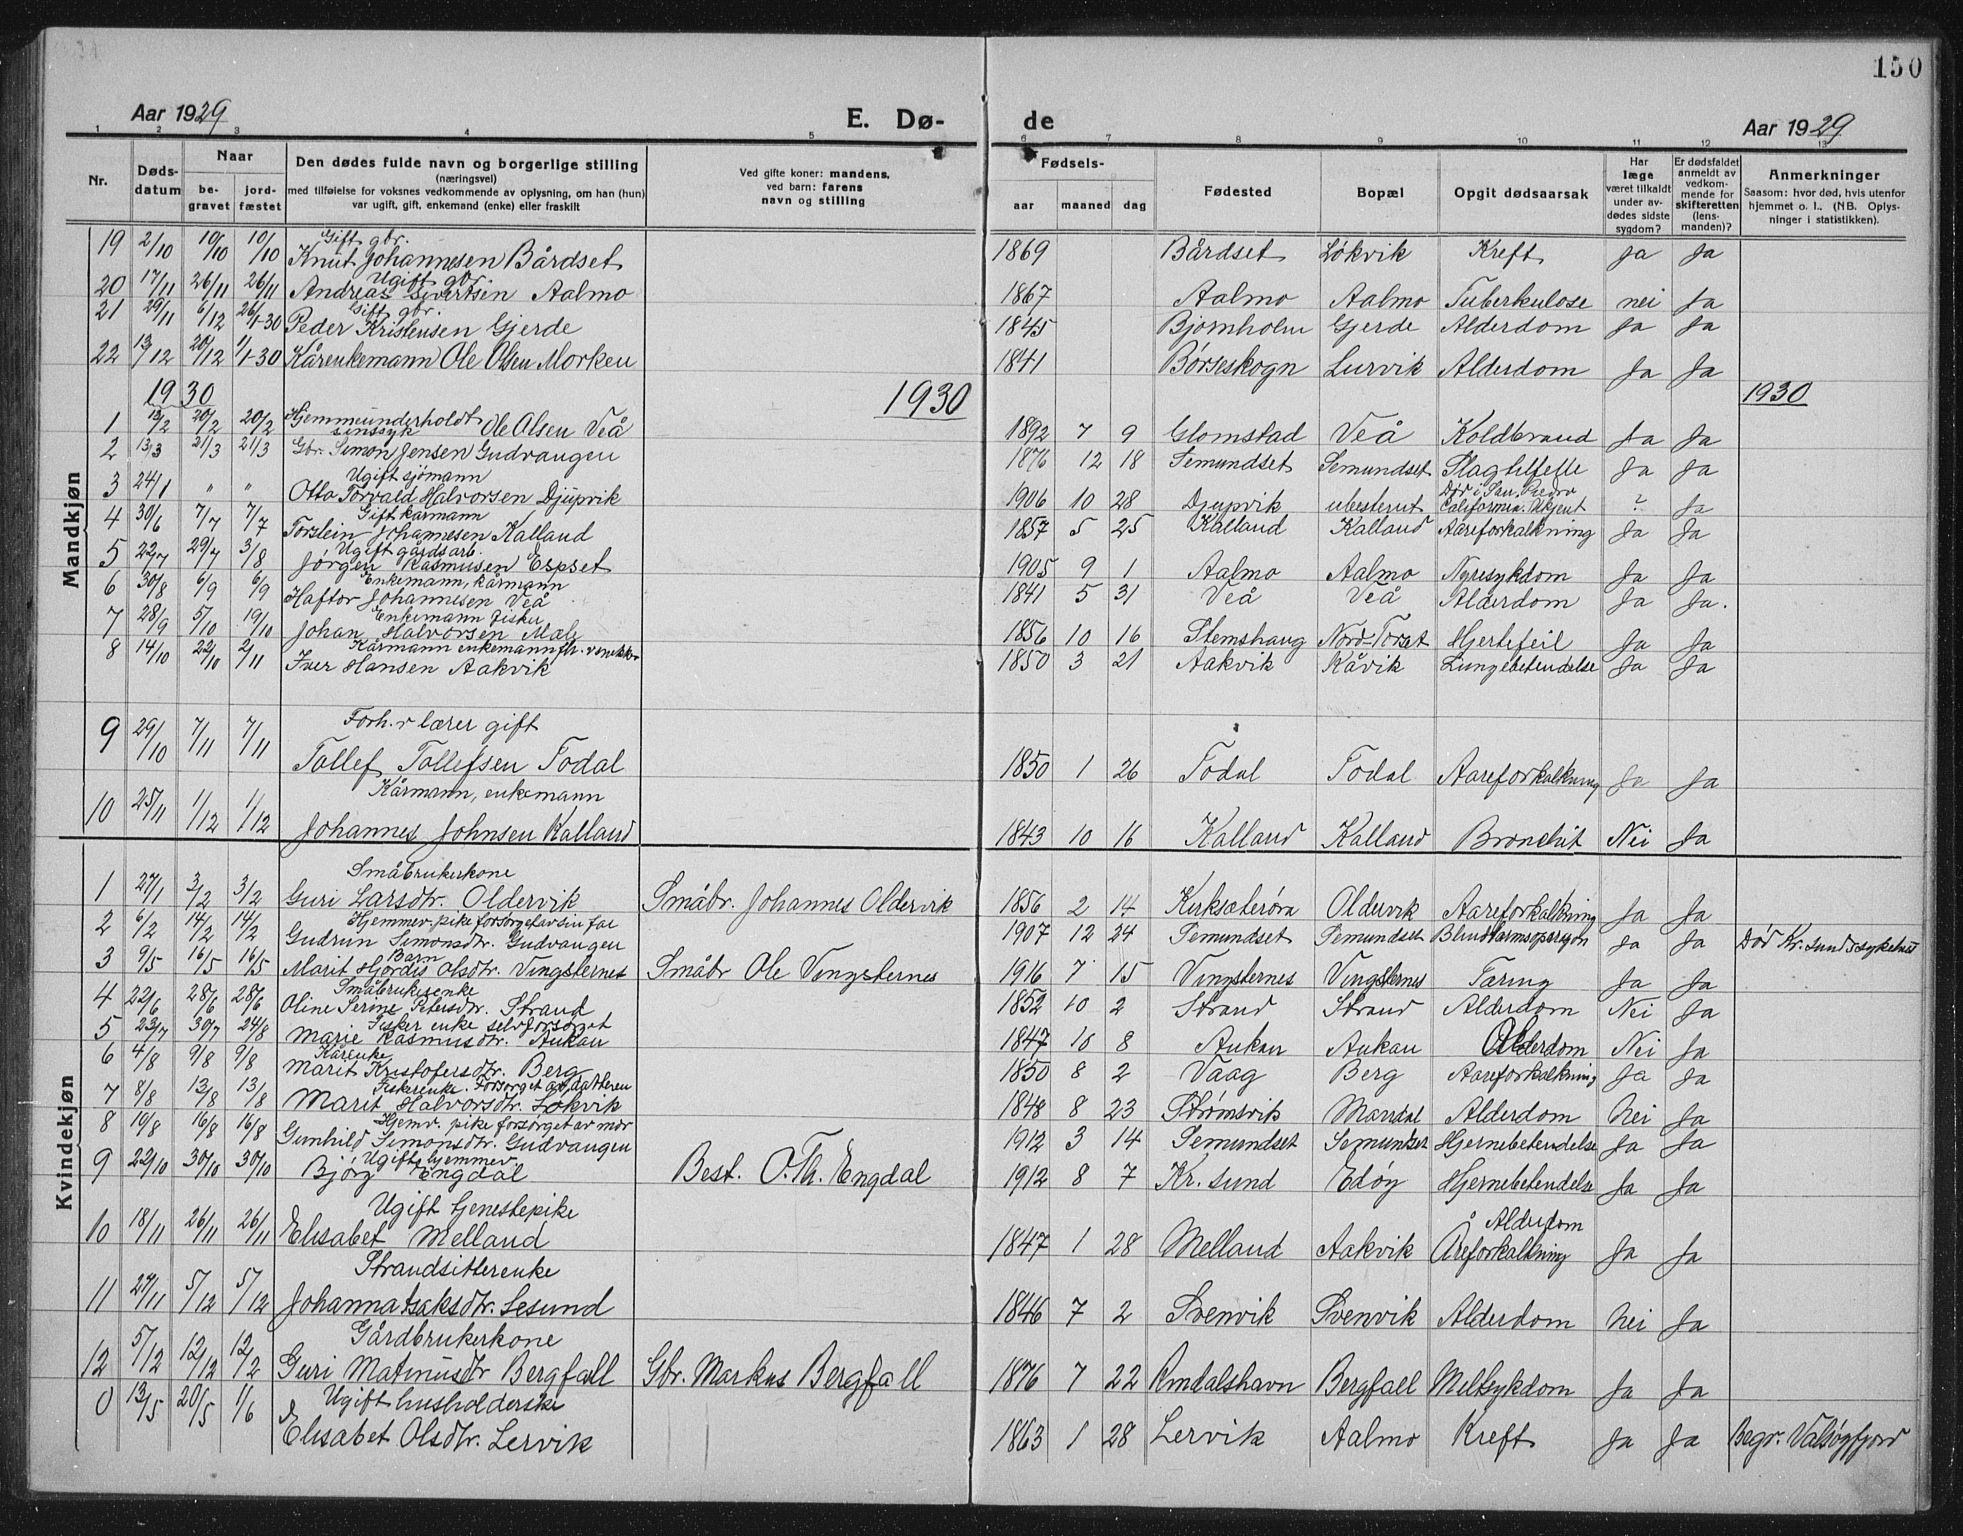 150
Aar 1929 E. Dø- de Aar 1929
1 2 3 4 5 6 7 8 9 10 11 12 13
Nr. Døds-datum Naar be-gravet jord-fæstet Den dødes fulde navn og borgerlige stilling (næringsvei) med tilføielse for voksnes vedkommende av oplysning, om han (hun) var ugift, gift, enkemand (enke) eller fraskilt Ved gifte koner: mandens, ved barn: farens navn og stilling Fødsels- aar maaned dag Fødested Bopæl Opgit dødsaarsak Har læge været tilkaldt under av-dødes sidste sygdom? Er dødsfaldet anmeldt av vedkom-mende for skifteretten (lens-manden)? Anmerkninger Saasom: hvor død, hvis utenfor hjemmet o. l., (NB. Oplys-ninger i statistikken).
Mandkjøn
Gift gbr.
19 2/10 10/10 10/10 Knut Johannesen Bårdset 1869 Bårdset Løkvik Kreft Ja Ja
Ugift gbr.
20 17/11 26/11 26/11 Andreas Sivertsen Aalmo 1867 Aalmo Aalmo Tuberkulose nei Ja
Gift gbr.
21 29/11 6/12 26/1-30 Peder Kristensen Gjerde 1845 Bjørnholm Gjerde Alderdom Ja Ja
22 13/12 20/12 1/1-30 Kårenkemann Ole Olsen Morken 1841 Børseskogn Lurvik Alderdom Ja Ja
1930 1930 1930
Hjemmeunderholdt
1 13/2 20/2 20/2 sinssyk Ole Olsen Veå 1892 7 9 Glomstad Veå Koldbrand Ja Ja
2 13/3 21/3 21/3 Gbr. Simon Jensen Gudvangen 1876 12 18 Semundset Semundset Slagtilfelle Ja Ja
Ugift sjømann Død i San Pedro
3 24/1 " " Otto Torvald Halvorsen Djupvik 1906 10 28 Djupvik ubestemt California. Ukjent ? Ja
Gift kårmann
4 30/6 7/7 7/7 Torstein Johannesen Kalland 1857 5 25 Kalland Kalland Aareforkalkning Ja Ja
Ugift gårdsarb.
5 22/7 29/7 3/8 Jørgen Rasmusen Espset 1905 9 1 Aalmo Aalmo Nyresykdom Ja Ja
Enkemann, kårmann
6 30/8 6/9 6/9 Haftor Johannesen Veå 1841 5 31 Veå Veå Alderdom Ja Ja.
Enkemann fisker
7 28/9 5/10 19/10 Johan Halvorsen Mæle 1856 10 16 Stemshaug Nord-Torset Hjertefeil Ja Ja
Kårmann enkemann
8 14/10 22/10 2/11 Iver Hansen Aakvik 1850 3 21 Aakvik Kåvik Lungebetendelse Ja Ja
Forh.v lærer gift
9 29/10 7/11 7/11 Tollef Tollefsen Todal 1850 1 26 Todal Todal Aareforkalkning Ja Ja
Kårmann, enkemann
10 25/11 1/12 1/12 Johannes Johnsen Kalland 1843 10 16 Kalland Kalland Bronchit Nei Ja
Kvindekjøn
Småbrukerkone
1 27/1 3/2 3/2 Guri Larsdtr. Oldervik Småbr. Johannes Oldervik 1856 2 14 Kirksæterøra Oldervik Aareforkalkning Ja Ja
Hjemmev. pike forsørget av sin far
2 6/2 14/2 14/2 Gudrun Simonsdtr. Gudvangen 1907 12 24 Semundset Semundset Blindtarmsoperasjon Ja Ja Død Kr.sunds sykehus
Barn
3 9/5 16/5 16/5 Marit Hjördis Olsdtr. Vingsternes Småbr Ole Vingsternes 1916 7 15 Vingsternes Vingsternes Tæring Ja Ja
Småbrukerenke
4 22/6 28/6 28/6 Oline Serine Petersdtr. Strand 1852 10 2 Strand Strand Alderdom Nei Ja
Fisker enke selvforsørget
5 23/7 30/7 24/8 Marie Rasmusdtr. Aukan 1847 10 8 Aukan Aukan Alderdom Nei Ja
Kårenke
6 4/8 9/8 9/8 Marit Kristofersdtr. Berg 1850 8 2 Vaag Berg Aareforkalkning Ja Ja
Fiskerenke. Forsørget av datteren
7 8/8 13/8 13/8 Marit Halvorsdtr. Løkvik 1848 8 23 Strømsvik Mandal Alderdom Nei Ja
Hjemv. pike forsørget av mor
8 10/8 16/8 16/8 Gunhild Simonsdtr. Gudvangen 1912 3 14 Semundset Semundset Hjernebetendelse Ja Ja
Ugift hjemmev.
9 22/10 30/10 30/10 Bjørg Engdal Best. O. Th. Engdal 1912 8 7 Kr. sund Edøy Hjernebetendelse Ja Ja
Ugift tjenestepike Alderdom
10 18/11 26/11 26/11 Elisabet Melland 1847 1 28 Melland Aakvik Åreforkalkning Ja Ja
Strandsitterenke
11 27/11 5/12 5/12 Johanna Isaksdtr. Sesund 1846 7 2 Svenvik Svenvik Alderdom Nei Ja
Gårdbrukerkone
12 5/12 12/12 12/12 Guri Matinusdtr Bergfall Gbr. Markus Bergfall 1876 7 22 Romdalshavn Bergfall Miltsykdom Ja Ja
Ugift husholderske
0 13/5 20/5 1/6 Elisabet Olsdtr. Lervik 1863 1 28 Lervik Aalmo Kreft Ja Ja Begr. Valsøyfjord